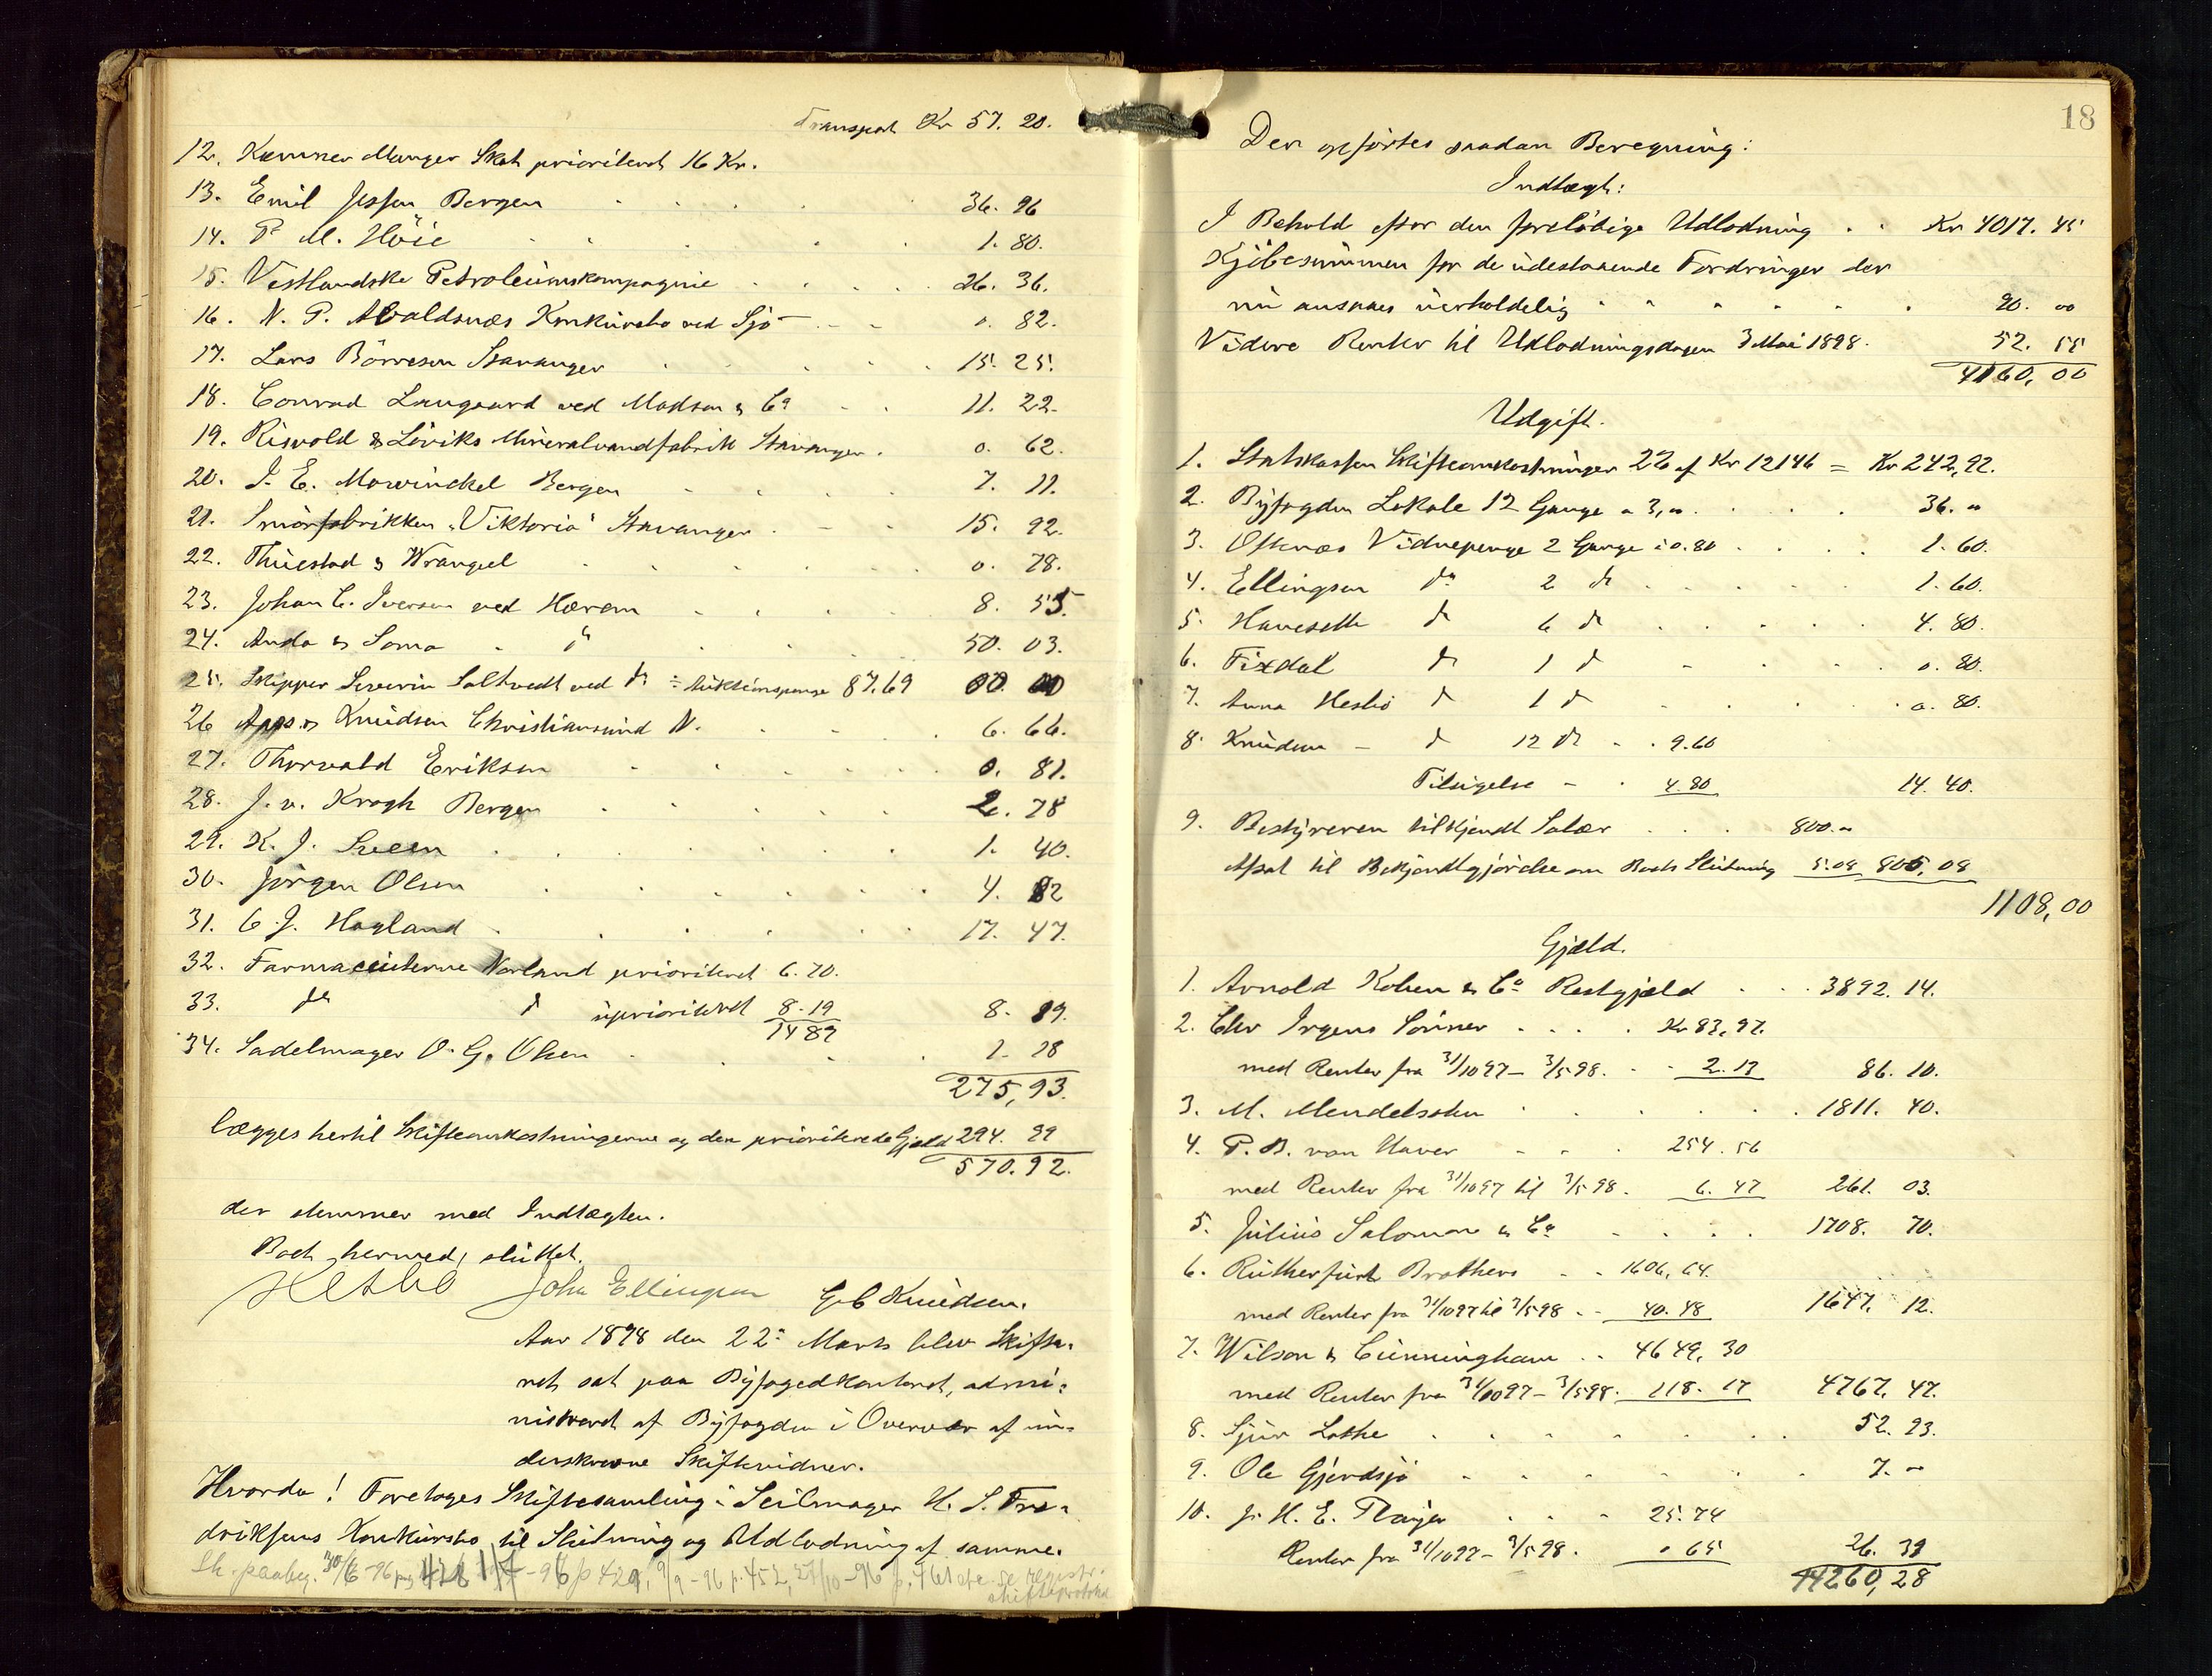 Transport Kr 57. 20.
12. Kemner Manger Skat prioriteret 16 Kr.
13. Emil Jessen Bergen 36. 96
14. P. M. Höie 1. 80.
15. Vestlandske Petroleumskompagnie 26. 36.
16. N. P. Avaldsnæs Konkursbo ved Sjö 0. 82.
17. Lars Börresen Stavanger 15. 25.
18. Conrad Langaard ved Madsen & Co 11. 22.
19. Risvold & Löviks Mineralvandfabrik Stavanger. 0. 62.
20. J. E. Mowinckel Bergen 7. 11.
21. Smörfabrikken "Viktoria" Stavanger 15. 92.
22. Thuestad & Wrangel 0. 78.
23. Johan C. Iversen ved Hærem 8. 55.
24. Anda & Soma do 50. 03.
25. Skipper Severin Saltvedt ved do ÷ Auktionspenge 87.69 00. 00
26 Knudsen Christiansund N. 6. 66.
27. Thorvald Eriksen 0. 81.
28. J. v. Krogh Bergen 2. 78
29. K. J. Sveen 1. 40.
30. Jörgen Olsen 4. 82
31. C. J. Hagland 17. 47.
32. Farmaceuterne Norland prioriteret 6.70.
33. do do uprioriteret 8.19 8. 19.
14 89
34. Sadelmager O. G. Olsen 1. 28
275,93.
lægges hertil Skifteomkostningerne og den prioriterede Gjæld 294. 99
570.92.
der stemmer med Indtægten.
Boet hermed sluttet.
Hesbö John Ellingsen G C Knudsen.
Aar 1898 den 22de Marts blev Skifte-
ret sat paa Byfogedkontoret, admi-
nistreret af Byfogden i Overvær af un-
derskrevne Skiftevidner.
Hvorda! Foretoges Skiftesamling i Seilmager H. S. Fre-
driksens Konkursbo til Slutning og Udlodning af samme.
Sk. paabeg. 30/6-96 pag 428 1/7-96 p 429, 9/9-96 p. 452, 27/10-96 p. 461 se registr.
skifteprotokol
18
Der opförtes saadan Beregning:
Indtægt:
I Behold efter den forelöbige Udlodning Kr 4017. 45
Kjöbesummen for de udestaaende Fordringer der
nu ansees uerholdelig 90. 00
Videre Renter til Udlodningsdagen 3 Mai 1898. 52. 55
4160,00
Udgift.
1. Statskassen Skifteomkostninger 2% af Kr 12146 = Kr 242,92.
2. Byfogden Lokale 12 Gange a 3,00 36. 00
3. Oftenæs Vidnepenge 2 Gange à 0.80 1. 60.
4. Ellingsen do 2 do 1. 60.
5. Haveseth do 6 do 4. 80.
6. Fixdal do 1 do 0. 80.
7. Anna Hesbö do 1 do 0. 80.
8. Knudsen - do 12 do 9.60
Tilsigelse 4.80 14. 40.
9. Bestyreren tilkjendt Salær 800.00
Afsat til Bekjendtgjörelse om Boets Slutning 5.08 805,08
1108,00
Gjæld.
1. Arnold Kohen & Co Restgjæld 3892. 14.
2. Chr Irgens Sönner Kr 83,97.
med Renter fra 31/10 97 - 3/5 98. 2.13 86. 10.
3. M. Mendelsohn 1811. 40.
4. P. B. von Haver 254.56
med Renter fra 31/10 97 til 3/5 98. 6. 47 261. 03.
5. Julius Salomon & Co 1708. 70.
6. Rutherfurt Brothers 1606,64.
med Renter fra 31/10 97 til 3/5 98 40.48 1647, 12.
7. Wilson & Cunningham 4649,30
med Renter fra 31/10 97 - 3/5 98. 118. 17 4767, 47.
8. Sjur Lothe 52. 93.
9. Ole Gjerdsjö 7. 00
10. J. H. E. Plaijer 25.74
Renter fra 31/10 97 - 3/5 98. 0 65 26. 39
14260,28